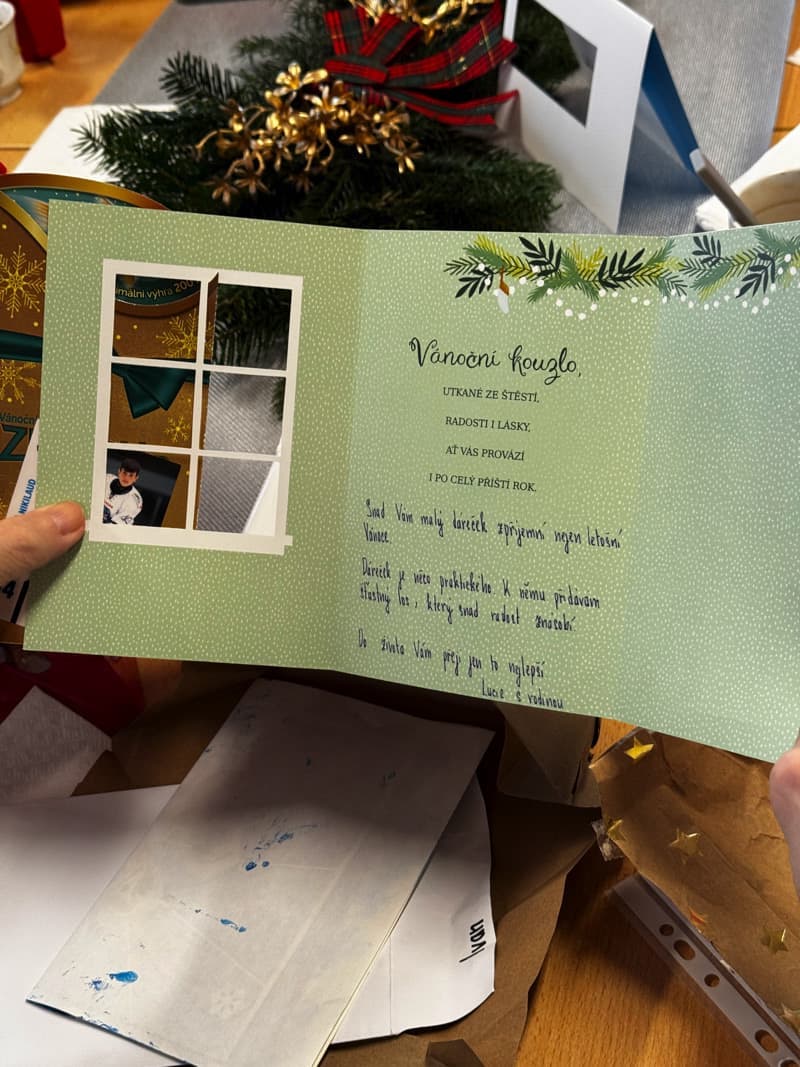 imální výhra 200
Vánoční
NIKILAUD
Vánoční kouzlo,
UTKANÉ ZE ŠTĚSTÍ,
RADOSTI I LÁSKY,
AŤ VÁS PROVÁZÍ
I PO CELÝ PŘÍŠTÍ ROK.
Snad Vám malý dáreček zpříjemní nejen letošní
Vánoce
Dáreček je něco praktického. K němu přidávám
šťastný los, který snad radost znásobí
Do života Vám přeji jen to nejlepší
Lucie s rodinou
Ivan